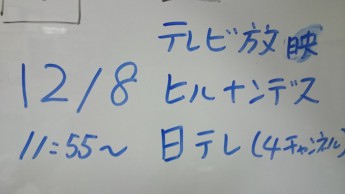 テレビ放映
12/8 ヒルナンデス
11:55～ 日テレ(4チャンネル)